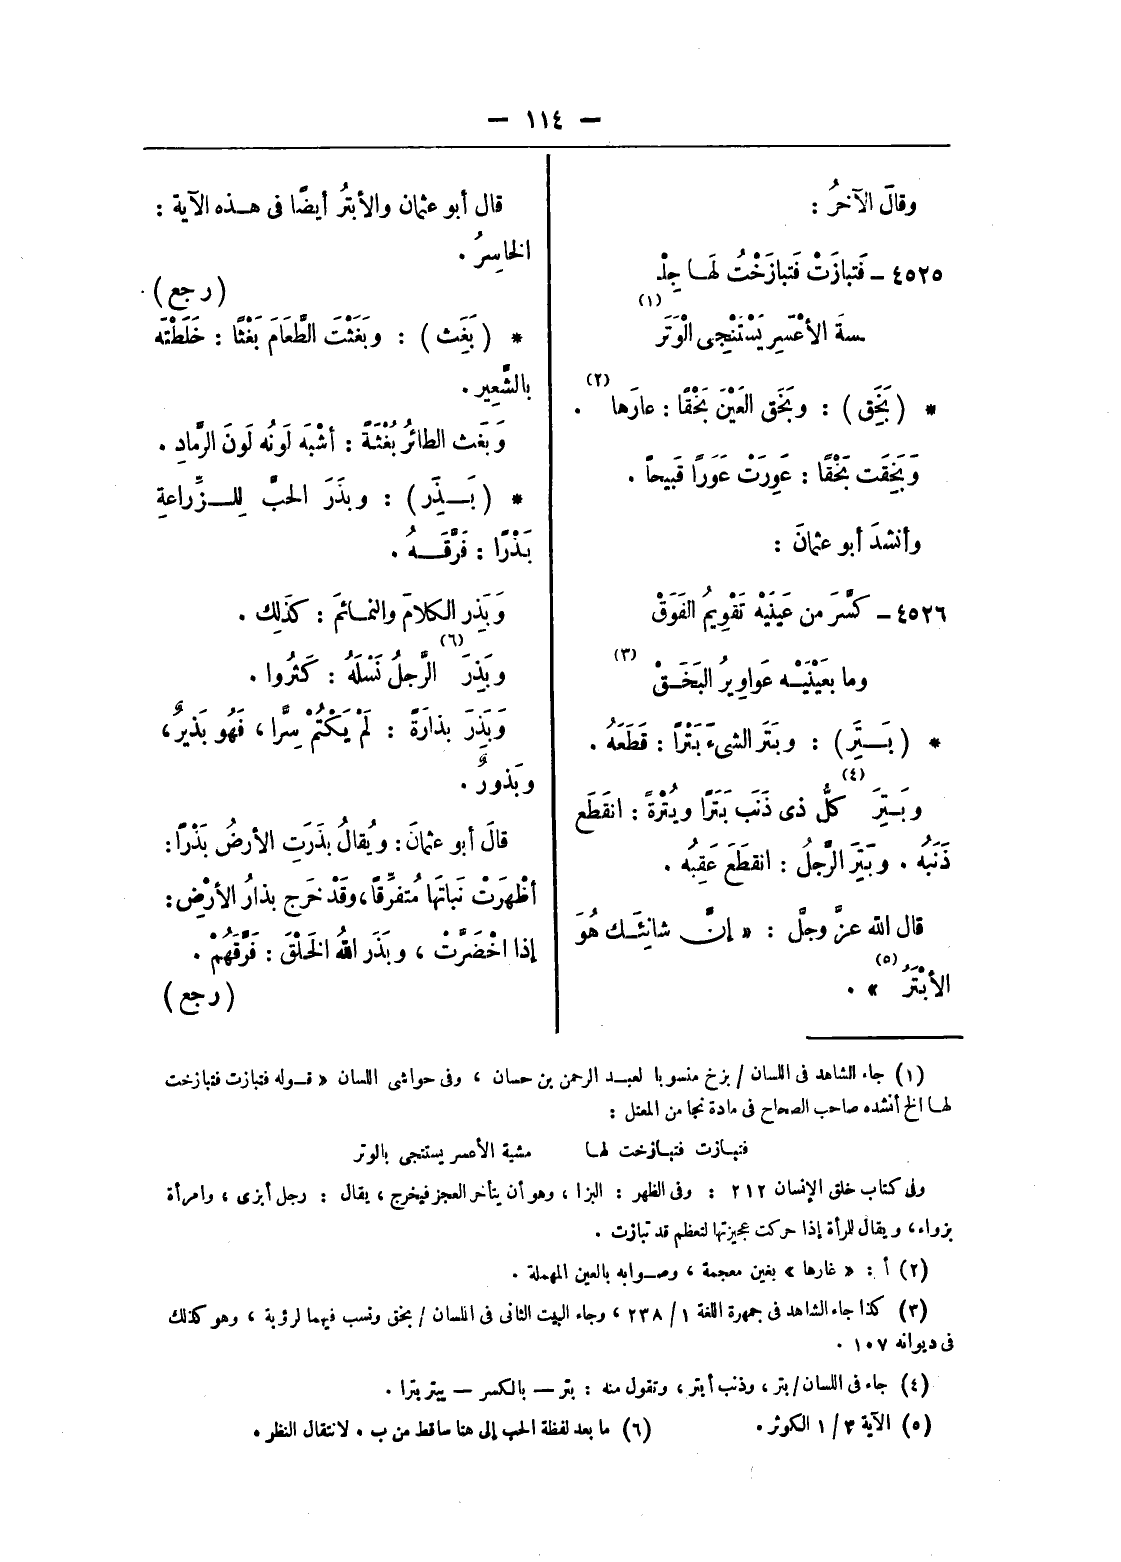 — ١١٤ —
وقالَ الآخرُ :
٤٥٢٥ ـ فَتبازَتْ فَتبازَخْتُ لَهَـا جِلْـ
ـسةَ الأعْسَرِ يَسْتَنْجِى الْوَتَرَ (١)
* ( بَخَِق ) : وبَخَق العَيْنَ بَخْقًا : عارَها (٢) .
وَبَخِقَت بَخْقًا : عَوِرَتْ عَوَرًا قَبيحاً .
وأنشدَ أبو عثمانَ :
٤٥٢٦ ـ كَسَّرَ من عَينَيْه تَقْوِيمُ الفَوَقْ
وما بعَيْنَيْـه عَواوِيرُ البَخَـقْ (٣)
* ( بَـتَِر ) : وبتَر الشىءَ بَتْرًا : قَطَعَهُ .
وبَـتِرَ (٤) كلُّ ذى ذَنَب بَتَرًا وبُتْرةً : انقَطَع
ذَنَبُه . وبَتِرَ الرَّجلُ : انقطَعَ عَقِبُه .
قال الله عزَّ وجلَّ : « إنَّ شانِئَـك هُوَ
الأبْتَرُ (٥) » .
قال أبو عثمان والأبترُ أيضًا فى هـذه الآية :
الخاسِرُ .
( رجع )
* ( بَغَِث ) : وبَغَثْتَ الطَّعامَ بَغْثًا : خَلَطْتَه
بالشَّعِير .
وَبَغَث الطائرُ بُغْثَةً : أشْبَه لَونُه لَونَ الرَّمادِ .
* ( بَـذَِر ) : وبذَرَ الحبَّ لِلـزِّراعةِ
بَذْرًا : فَرَّقَـهُ .
وَبَذِر الكلامَ والنمـائمَ : كذَلِك .
وبَذِرَ (٦) الرَّجلُ نَسْلَهُ : كَثُروا .
وَبَذِرَ بذارَةً : لَمْ يَكْتُمْ سِرًّا ، فَهُو بَذيرٌ ،
وبَذورٌ .
قالَ أبو عثمانَ : ويُقالُ بذَرَتِ الأرضُ بَذْرًا :
أظْهَرَتْ نَباتَها مُتفرِّقًا ، وقَدْ خَرج بذارُ الأرْضِ :
إذا اخْضَرَّتْ ، وبَذَر اللهُ الخَلْقَ : فَرَّقَهُمْ .
( رجع )
(١) جاء الشاهد فى اللسان / بزخ منسوبا لعبـد الرحمن بن حسان ، وفى حواشى اللسان « قـوله فتبازت فتبازخت
لهـا الخ أنشده صاحب الصحاح فى مادة نجا من المعتل :
فتبـازت فتبـازخت لهـا مشية الأعسر يستنجى بالوتر
وفى كتاب خلق الإنسان ٢١٢ : وفى الظهر : البزا ، وهو أن يتأخر العجز فيخرج ، يقال : رجل أبزى ، وامرأة
بزواء ، ويقال للمرأة إذا حركت عجيزتها لتعظم قد تبازت .
(٢) أ : « غارها » بغين معجمة ، وصـوابه بالعين المهملة .
(٣) كذا جاء الشاهد فى جمهرة اللغة ١ / ٢٣٨ ، وجاء البيت الثانى فى اللسان / بخق ونسب فيهما لرؤبة ، وهو كذلك
فى ديوانه ١٠٧ .
(٤) جاء فى اللسان / بتر ، وذنب أبتر ، وتقول منه : بتر — بالكسر — يبتر بترا .
(٥) الآية ٣ / ١ الكوثر . (٦) ما بعد لفظة الحب إلى هنا ساقط من ب . لانتقال النظر .